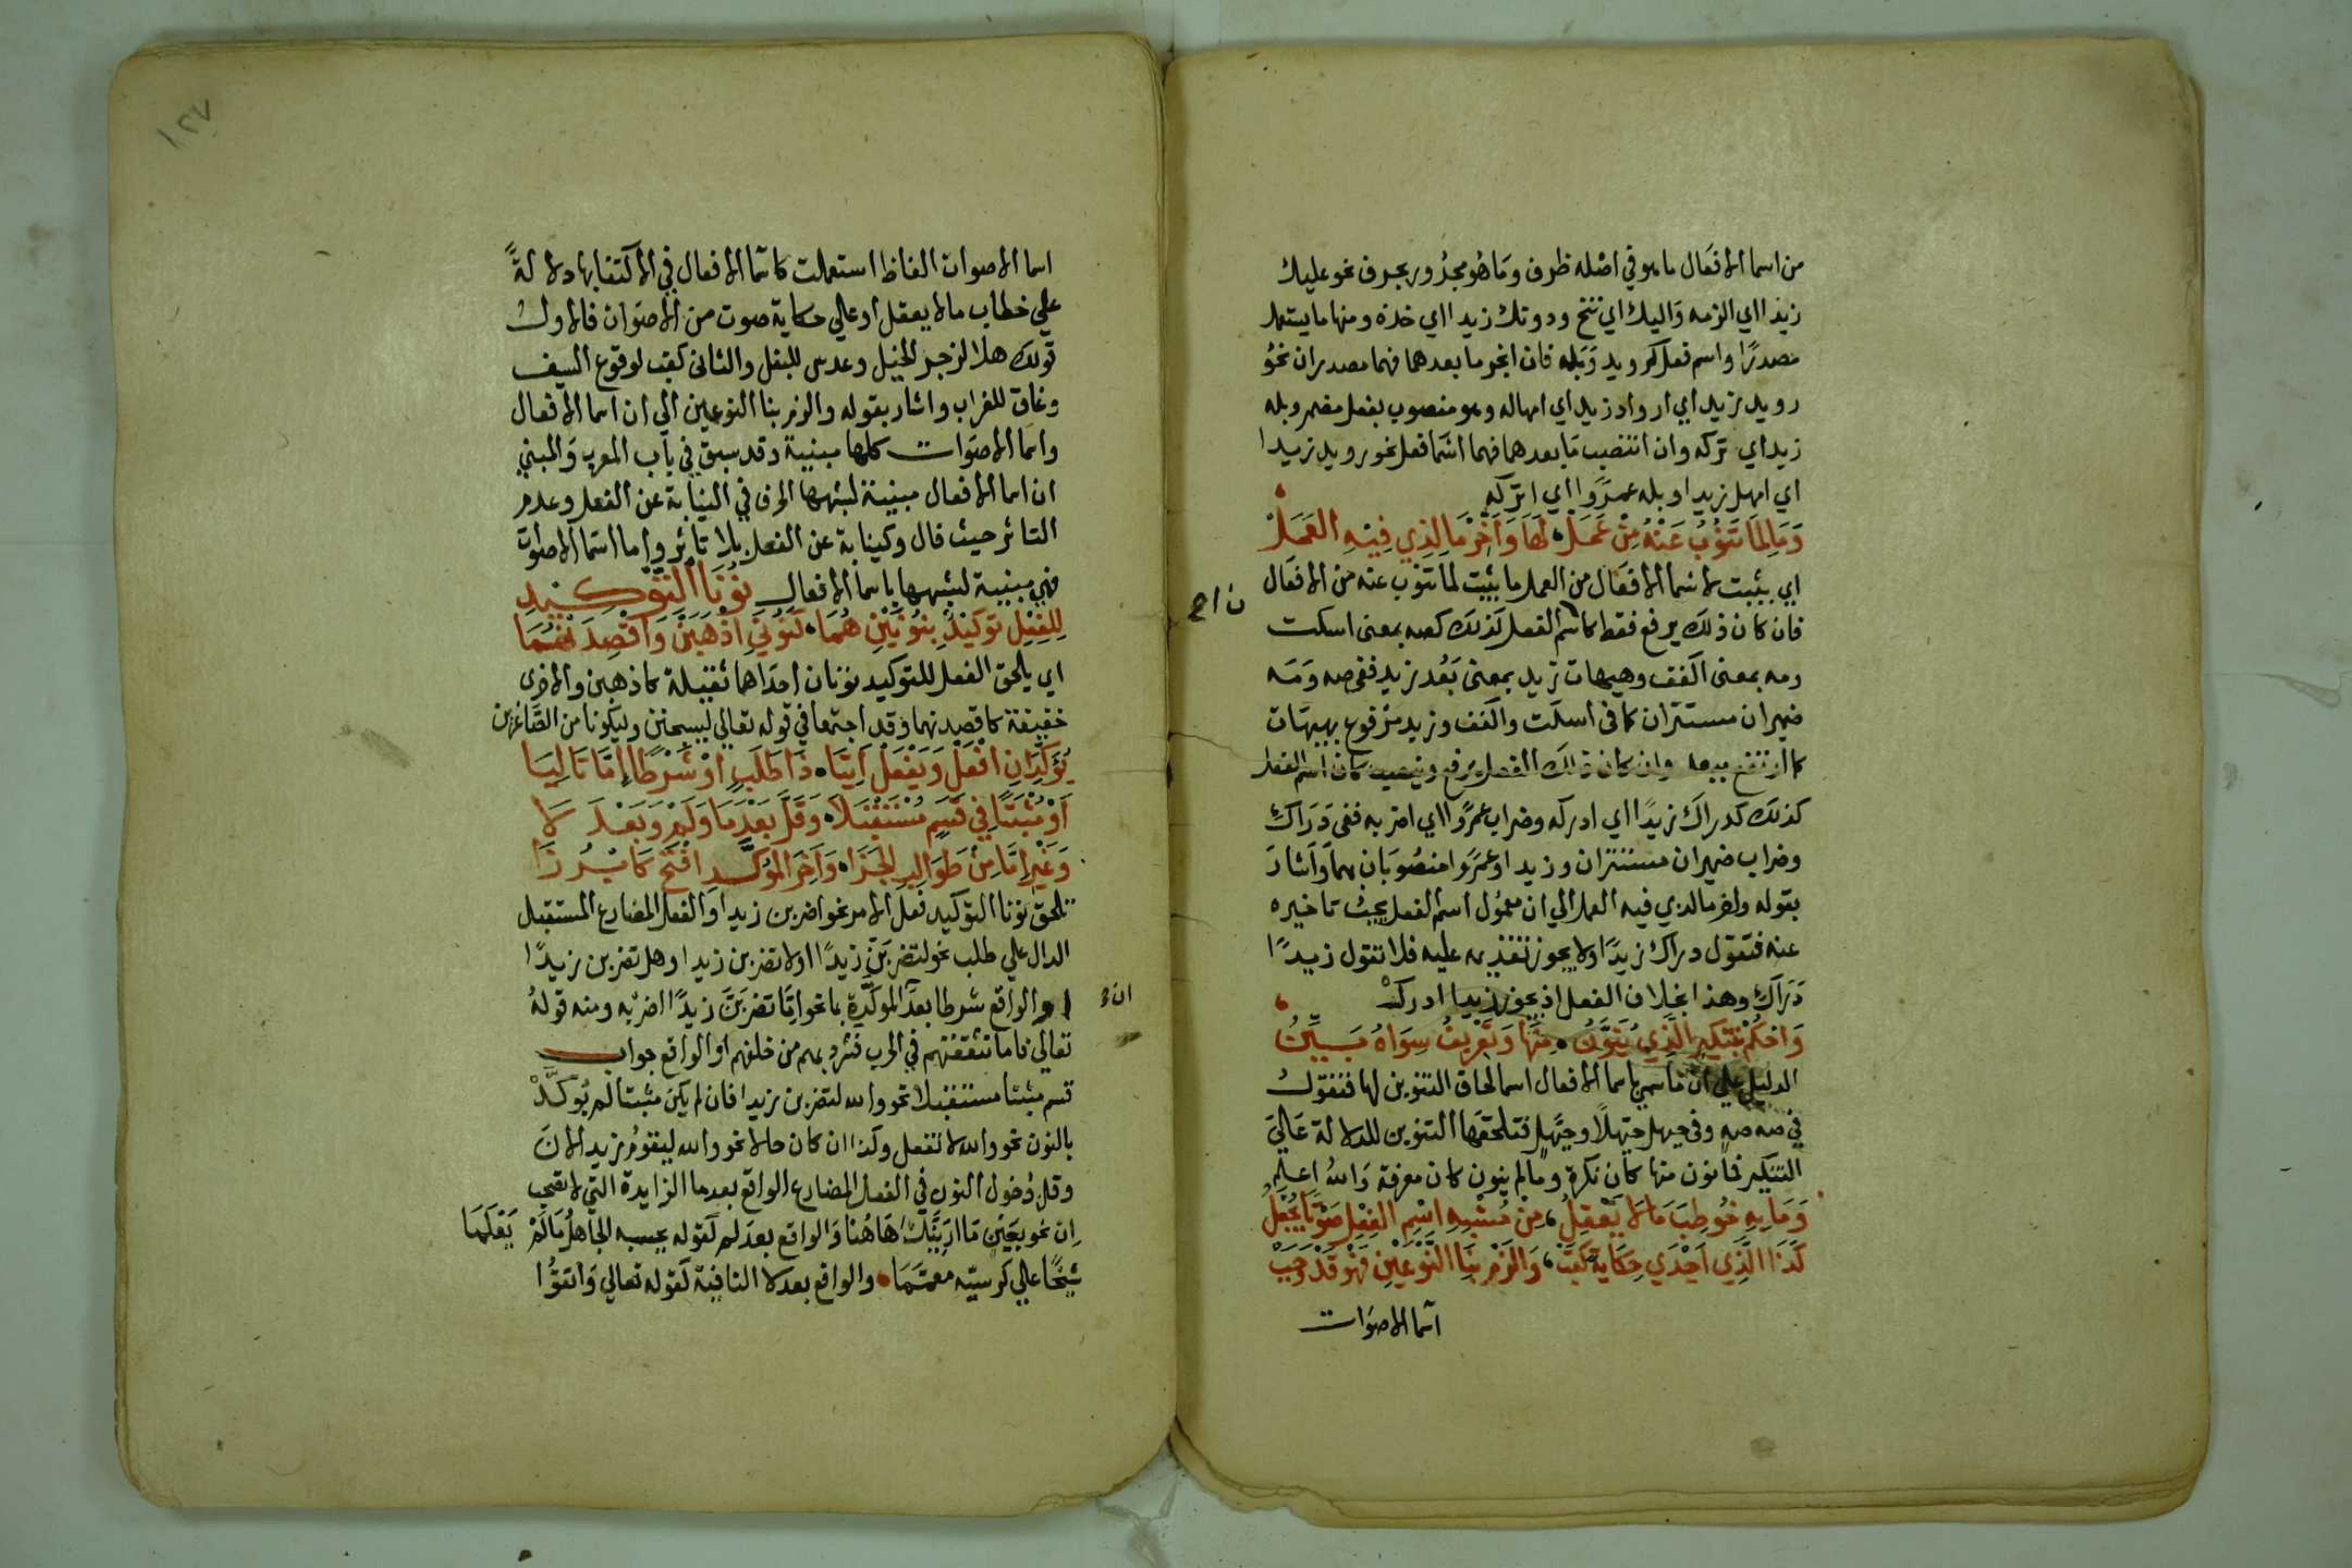 من اسما الافعال ما هو في اصله ظرف وما هو مجرور بحرف نحو عليك
زيدا اي الزمه واليك اي تنح ودونك زيدا اي خذه ومنها ما يستعمل
مصدرًا واسم فعل كرويد وبله فان انجر ما بعدهما فهما مصدران نحو
رويد زيد اي ارواد زيد اي امهاله وهو منصوب بفعل مضمر وبله
زيد اي تركه وان انتصب ما بعدهما فهما اسما فعل نحو رويد زيدا
اي امهل زيدا وبله عمروا اي اتركه
وَمَا لِمَا تَنُوْبُ عَنْهُ مِنْ عَمَلْ لَهَا وَاَخِّرْ مَا لِذِي فِيْهِ العَمَلْ
اي يثبت لاسما الافعال من العمل ما يثبت لما تنوب عنه من الافعال
فان كان ذلك يرفع فقط كاسم الفعل كذلك كصه بمعنى اسكت
ومه بمعنى اكفف وهيهات زيد بمعنى بَعُد زيد ففي صه ومَه
ضميران مستتران كما في اسكت واكفف وزيد مرفوع بهيهات
كما ارتفع ببعد وان كان ذلك الفعل يرفع وينصب كان اسم الفعل
كذلك كدراك زيدًا اي ادركه وضراب عمرًوا اي اضربه ففي دَرَاكِ
وضراب ضميران مستتران وزيدا وعمروا منصوبان بهما واشار
بقوله واخر ما لذي فيه العمل الي ان معمول اسم الفعل يجب تاخيره
عنه فتقول دراك زيدًا ولا يجوز تقديمه عليه فلا تقول زيدًا
دَرَاكِ وهذا بخلاف الفعل اذ يجوز زيدا ادرك
وَاحْكُمْ بِتَنْكِيرِ الَّذِي يُنَوَّنُ مِنْهَا وَتَعْرِيفُ سِوَاهُ بَيِّنُ
الدليل علي ان ما سمي باسما الافعال اسما لحاق التنوين لها فتقول
في صه صهٍ وفي حيهل حيهلًا وحيهل فتلحقها التنوين للدلالة علي
التنكير فما نون منها كان نكرة وما لم ينون كان معرفة والله اعلم
وَمَا بِهِ خُوطِبَ مَا لَا يَعْقِلُ مِنْ مُشْبِهِ اسْمِ الفِعْلِ صَوْتًا يُجْعَلُ
كَذَا الَّذِي اَجْدَي حِكَايَةً كَقَبْ وَالْزَمْ بِنَا النَّوْعَيْنِ فَهْوَ قَدْ وَجَبْ
اسما الاصوات
ن اح
١٢٧
اسما الاصوات الفاظ استعملت كاسما الافعال في الاكتفا بها دلالةً
علي خطاب ما لا يعقل او علي حكاية صوت من الاصوات فالاول
قولك هلا لزجر الخيل وعدس للبغل والثاني كقب لوقوع السيف
وغاق للغراب واشار بقوله والزم بنا النوعين الي ان اسما الافعال
واسما الاصوات كلها مبنية وقد سبق في باب المعرب والمبني
ان اسما الافعال مبنية لشبهها الحرف في النيابة عن الفعل وعدم
التاثر حيث قال وكنيابة عن الفعل بلا تاثر واما اسما الاصوات
فهي مبنية لشبهها باسما الافعال نُوْنَا التَّوْكِيْدِ
لِلْفِعْلِ تَوْكِيْدٌ بِنُوْنَيْنِ هُمَا كَنُوْنَيِ اذْهَبَنَّ وَاقْصِدَنْهُمَا
اي يلحق الفعل للتوكيد نونان احداهما ثقيلة كاذهبن والاخرى
خفيفة كاقصدنهما وقد اجتمعا في قوله تعالي ليسجنن وليكونا من الصاغرين
يُؤَكِّدَانِ افْعَلْ وَيَفْعَلْ آتِيَا ذَا طَلَبٍ اوْ شَرْطًا إِمَّا تَالِيَا
اَوْ مُثْبَتًا فِي قَسَمٍ مُسْتَقْبَلَا وَقَلَّ بَعْدَ مَا وَلَمْ وَبَعْدَ لَا
وَغَيْرِ اِمَّا مِنْ طَوَالِبِ الجَزَا وَآخِرَ المُؤَكَّدِ افْتَحْ كَابْرُزَا
تلحق نونا التوكيد فعل الامر نحو اضربن زيدا والفعل المضارع المستقبل
الدال علي طلب نحو لتضربن زيدًا ولا تضربن زيدا وهل تضربن زيدًا
او الواقع شرطا بعد ان المؤكدة بما نحو اِمَّا تضربن زيدًا اضربه ومنه قوله
تعالي فاما تثقفنهم في الحرب فشرد بهم من خلفهم او الواقع جواب
قسم مثبتا مستقبلا نحو والله لتضربن زيدا فان لم يكن مثبتا لم يُوكَّدْ
بالنون نحو والله لا تفعل وكذا ان كان حالا نحو والله ليقوم زيد الان
وقل دخول النون في الفعل المضارع الواقع بعد ما الزايدة التي لا تصحب
اِن نحو بِعَيْنٍ مَا ارَيَنَّكَ هَاهُنا والواقع بعد لم كقوله يحسبه الجاهل مالم يَعْلَمَا
شيخًا علي كرسيّه معمَّمَا والواقع بعد لا النافية كقوله تعالي واتقوا